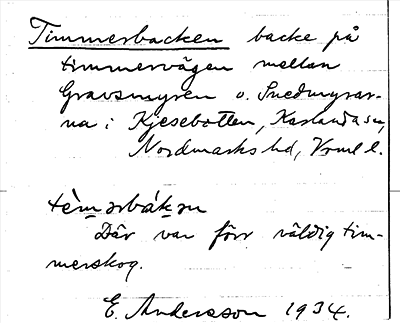 Timmerbacken backe på
timmervägen mellan
Gravsmyren o. Snedmyrar-
na i Kjesebotten, Karlanda sn,
Nordmarks hd, Vrml l.
tèm ərbák ən
Där var förr väldig tim-
merskog.
E. Andersson 1934.